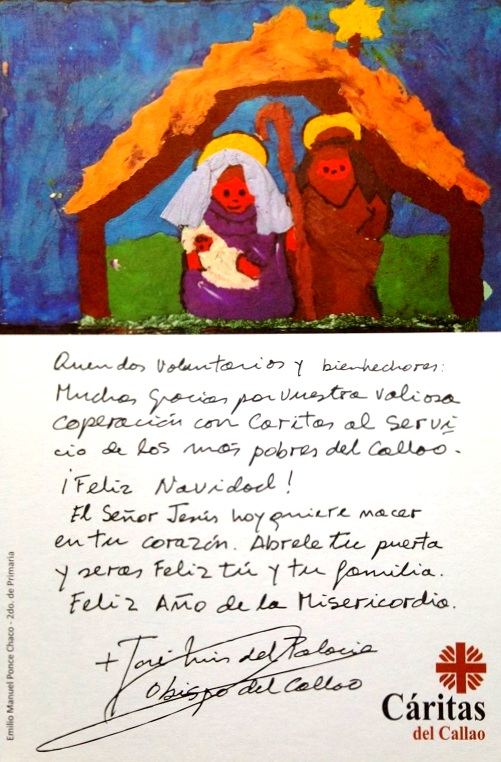 Queridos voluntarios y bienhechores:
Muchas gracias por vuestra valiosa
coperación con Caritas al servi
cio de los más pobres del Callao.
¡Feliz Navidad!
El Señor Jesús hoy quiere nacer
en tu corazón. Abrele tu puerta
y seras Feliz tú y tu familia.
Feliz Año de la Misericordia.
+ José Luis del Palacio
Obispo del Callao
Emilio Manuel Ponce Chaco - 2do. de Primaria
Cáritas
del Callao